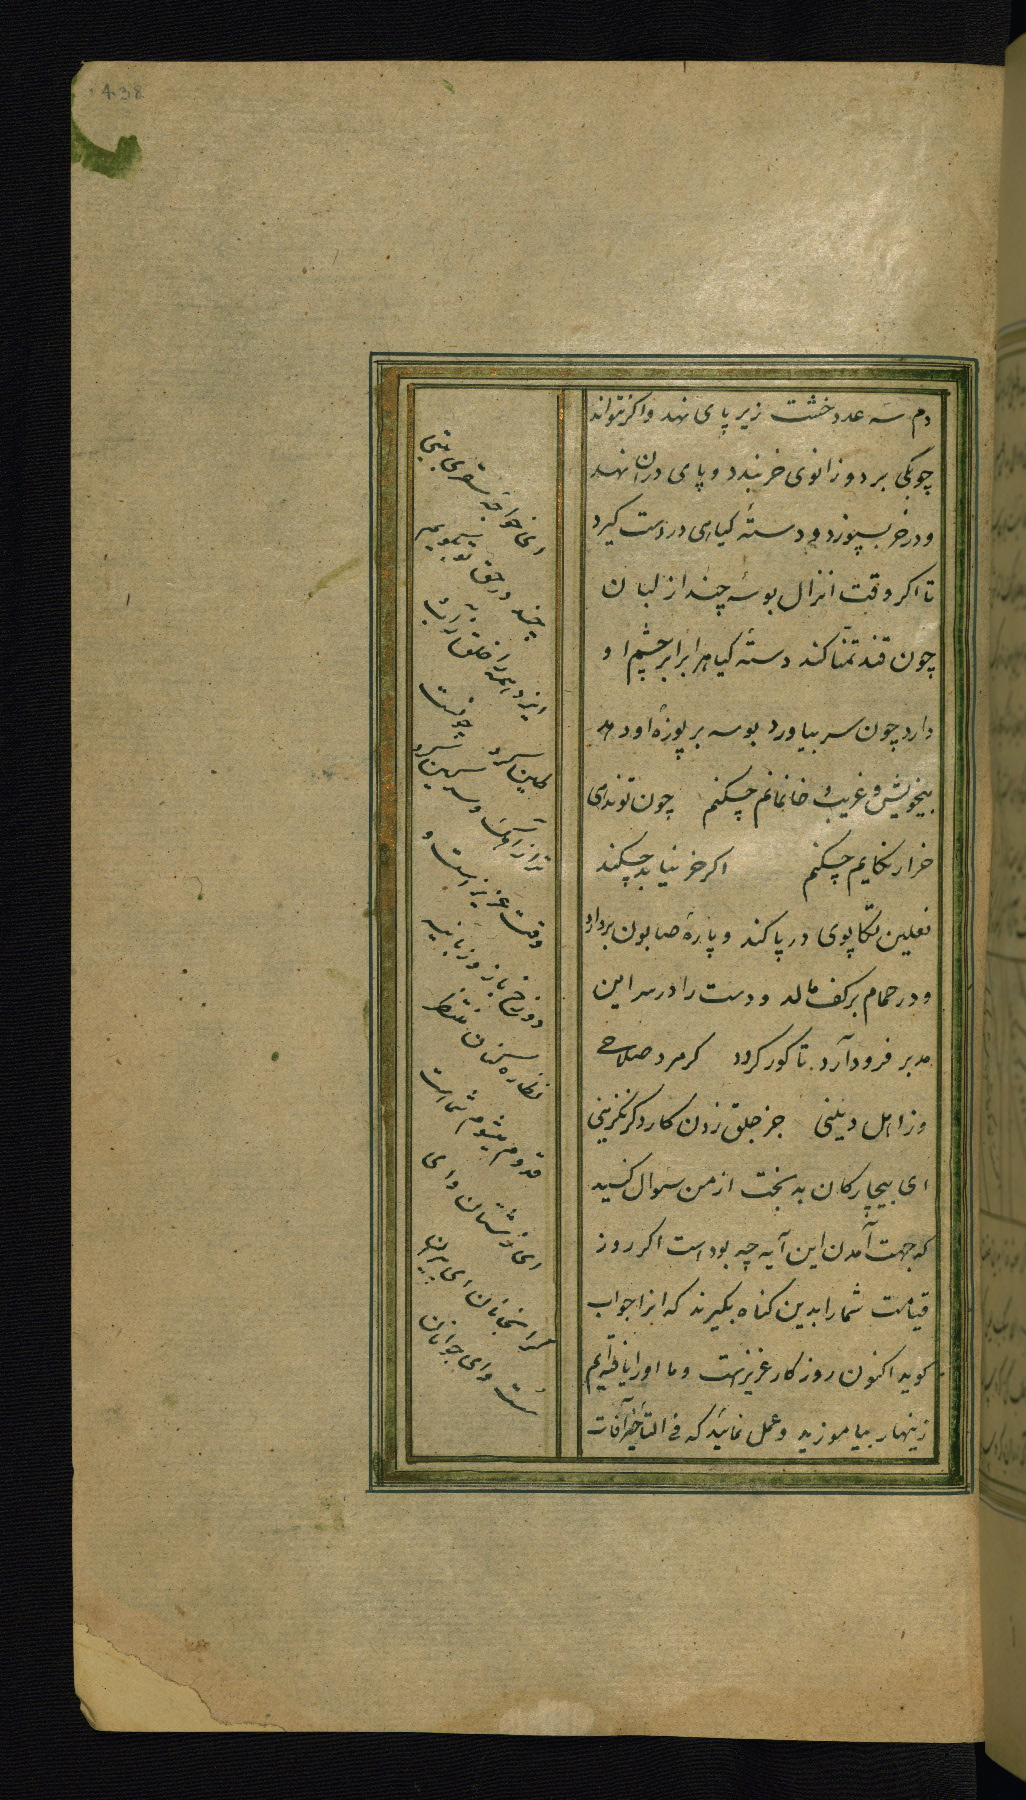 438
دم سه عدد خشت زیر پای نهد واکر نتواند
چوبکی بر دو زانوی خر بندد و پای دران نهد
ودر خر بسپوزد و دستهٔ کیاهی در دست کیرد
تا اکر وقت انزال بوسهٔ چند از لبان
چون قند تمنا کند دستهٔ کیاه را برابر چشم او
دارد چون سر بیاورد بوسه بر پوزهٔ او دهد
بیخویش و غریب و خانمانم چکنم چون تو ندهی
خرار نکایم چکنم اکر خر نیابد چکند
نعلین تکاپوی در پا کند و پارهٔ صابون بردارد
و در حمام بر کف مالد و دست را در سر این
مدبر فرود آرد تا کور کردد کر مرد صلاحی
وز اهل دینی جز جلق زدن کار دکر نکزینی
ای بیچارکان بدبخت از من سوال کنید
که جهت آمدن این آیه چه بود است اکر روز
قیامت شما را بدین کناه بکیرند که ابرا جواب
کوید اکنون روزکار عزیزست و ما او را یافته‌ایم
زینهار بیاموزید و عمل نمائید که فی التأخیر آفات
ای خواجه
چند در حق تو بد کویم
ایزد همه را
چونست
وقت عزیز است و
دوزخ باز و زبانیه
نظاره کنان منتظر
قدوم میشوم شماست
ای زشتان وای
کرانجانان ای پیران
وای جوانان